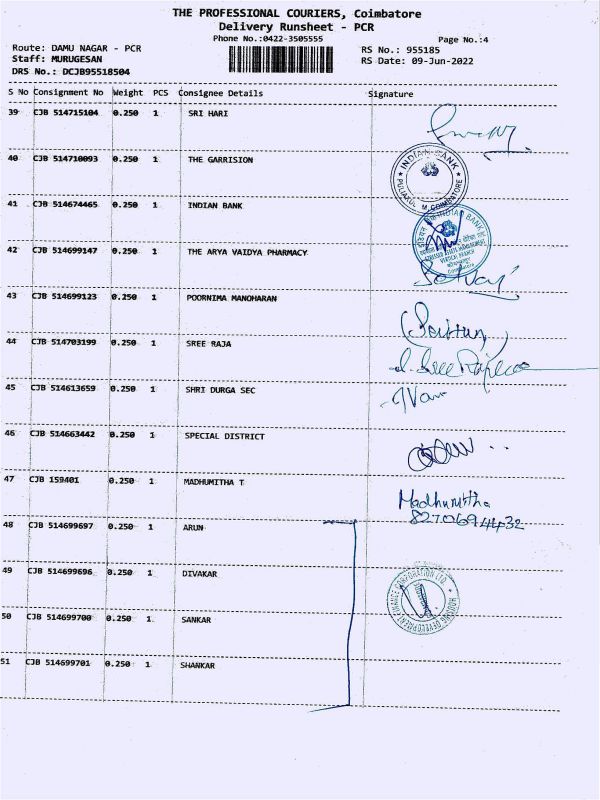 THE PROFESSIONAL COURIERS, Coimbatore
Delivery Runsheet - PCR
Phone No.:0422-3505555
Page No.:4
Route: DAMU NAGAR - PCR
RS No.: 955185
Staff: MURUGESAN
RS Date: 09-Jun-2022
DRS No.: DCJB95518504
S No Consignment No Weight PCS Consignee Details Signature
39 CJB 514715104 0.250 1 SRI HARI
40 CJB 514710093 0.250 1 THE GARRISION
INDIAN BANK
PULIAKULAM, COIMBATORE
41 CJB 514674465 0.250 1 INDIAN BANK
INDIAN BANK
42 CJB 514699147 0.250 1 THE ARYA VAIDYA PHARMACY
43 CJB 514699123 0.250 1 POORNIMA MANOHARAN
44 CJB 514703199 0.250 1 SREE RAJA
45 CJB 514613659 0.250 1 SHRI DURGA SEC
46 CJB 514663442 0.250 1 SPECIAL DISTRICT
47 CJB 159401 0.250 1 MADHUMITHA T
Madhumitha
8270694432
48 CJB 514699697 0.250 1 ARUN
49 CJB 514699696 0.250 1 DIVAKAR
HOUSING DEVELOPMENT FINANCE CORPORATION LTD.
50 CJB 514699700 0.250 1 SANKAR
51 CJB 514699701 0.250 1 SHANKAR